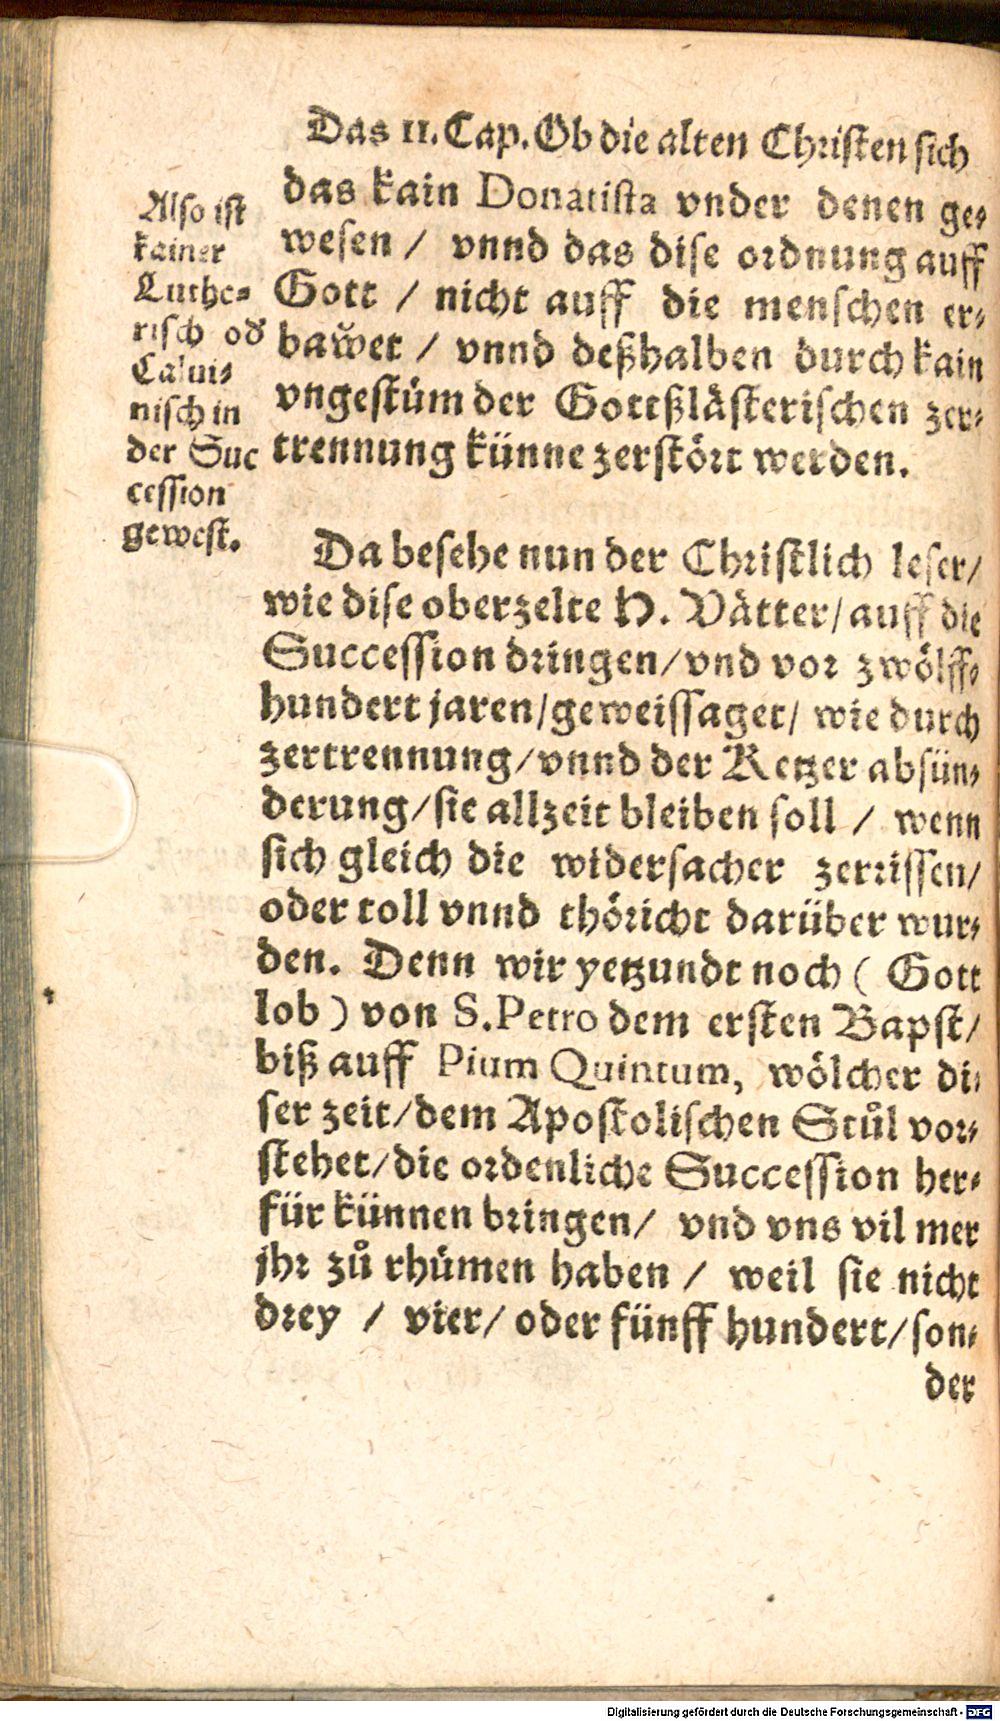 Das 11. Cap. Ob die alten Christen sich
das kain Donatista vnder denen ge⸗
wesen / vnnd das dise ordnung auff
Gott / nicht auff die menschen er⸗
bawet / vnnd deßhalben durch kain
vngestüm der Gottßlästerischen zer⸗
trennung künne zerstört werden.
Also ist
kainer
Luthe⸗
risch od
Calui⸗
nisch in
der Suc
cession
gewest.
Da besehe nun der Christlich leser/
wie dise oberzelte H. Vätter/ auff die
Succession dringen/ vnd vor zwölff⸗
hundert jaren/ geweissaget/ wie durch
zertrennung/ vnnd der Ketzer absün⸗
derung/ sie allzeit bleiben soll / wenn
sich gleich die widersacher zerrissen/
oder toll vnnd thöricht darüber wur⸗
den. Denn wir yetzundt noch ( Gott
lob ) von S. Petro dem ersten Bapst/
biß auff Pium Quintum, wölcher di⸗
ser zeit/ dem Apostolischen Stůl vor⸗
stehet/ die ordenliche Succession her⸗
für künnen bringen/ vnd vns vil mer
jhr zů rhümen haben / weil sie nicht
drey / vier/ oder fünff hundert/ son⸗
der
Digitalisierung gefördert durch die Deutsche Forschungsgemeinschaft - DFG